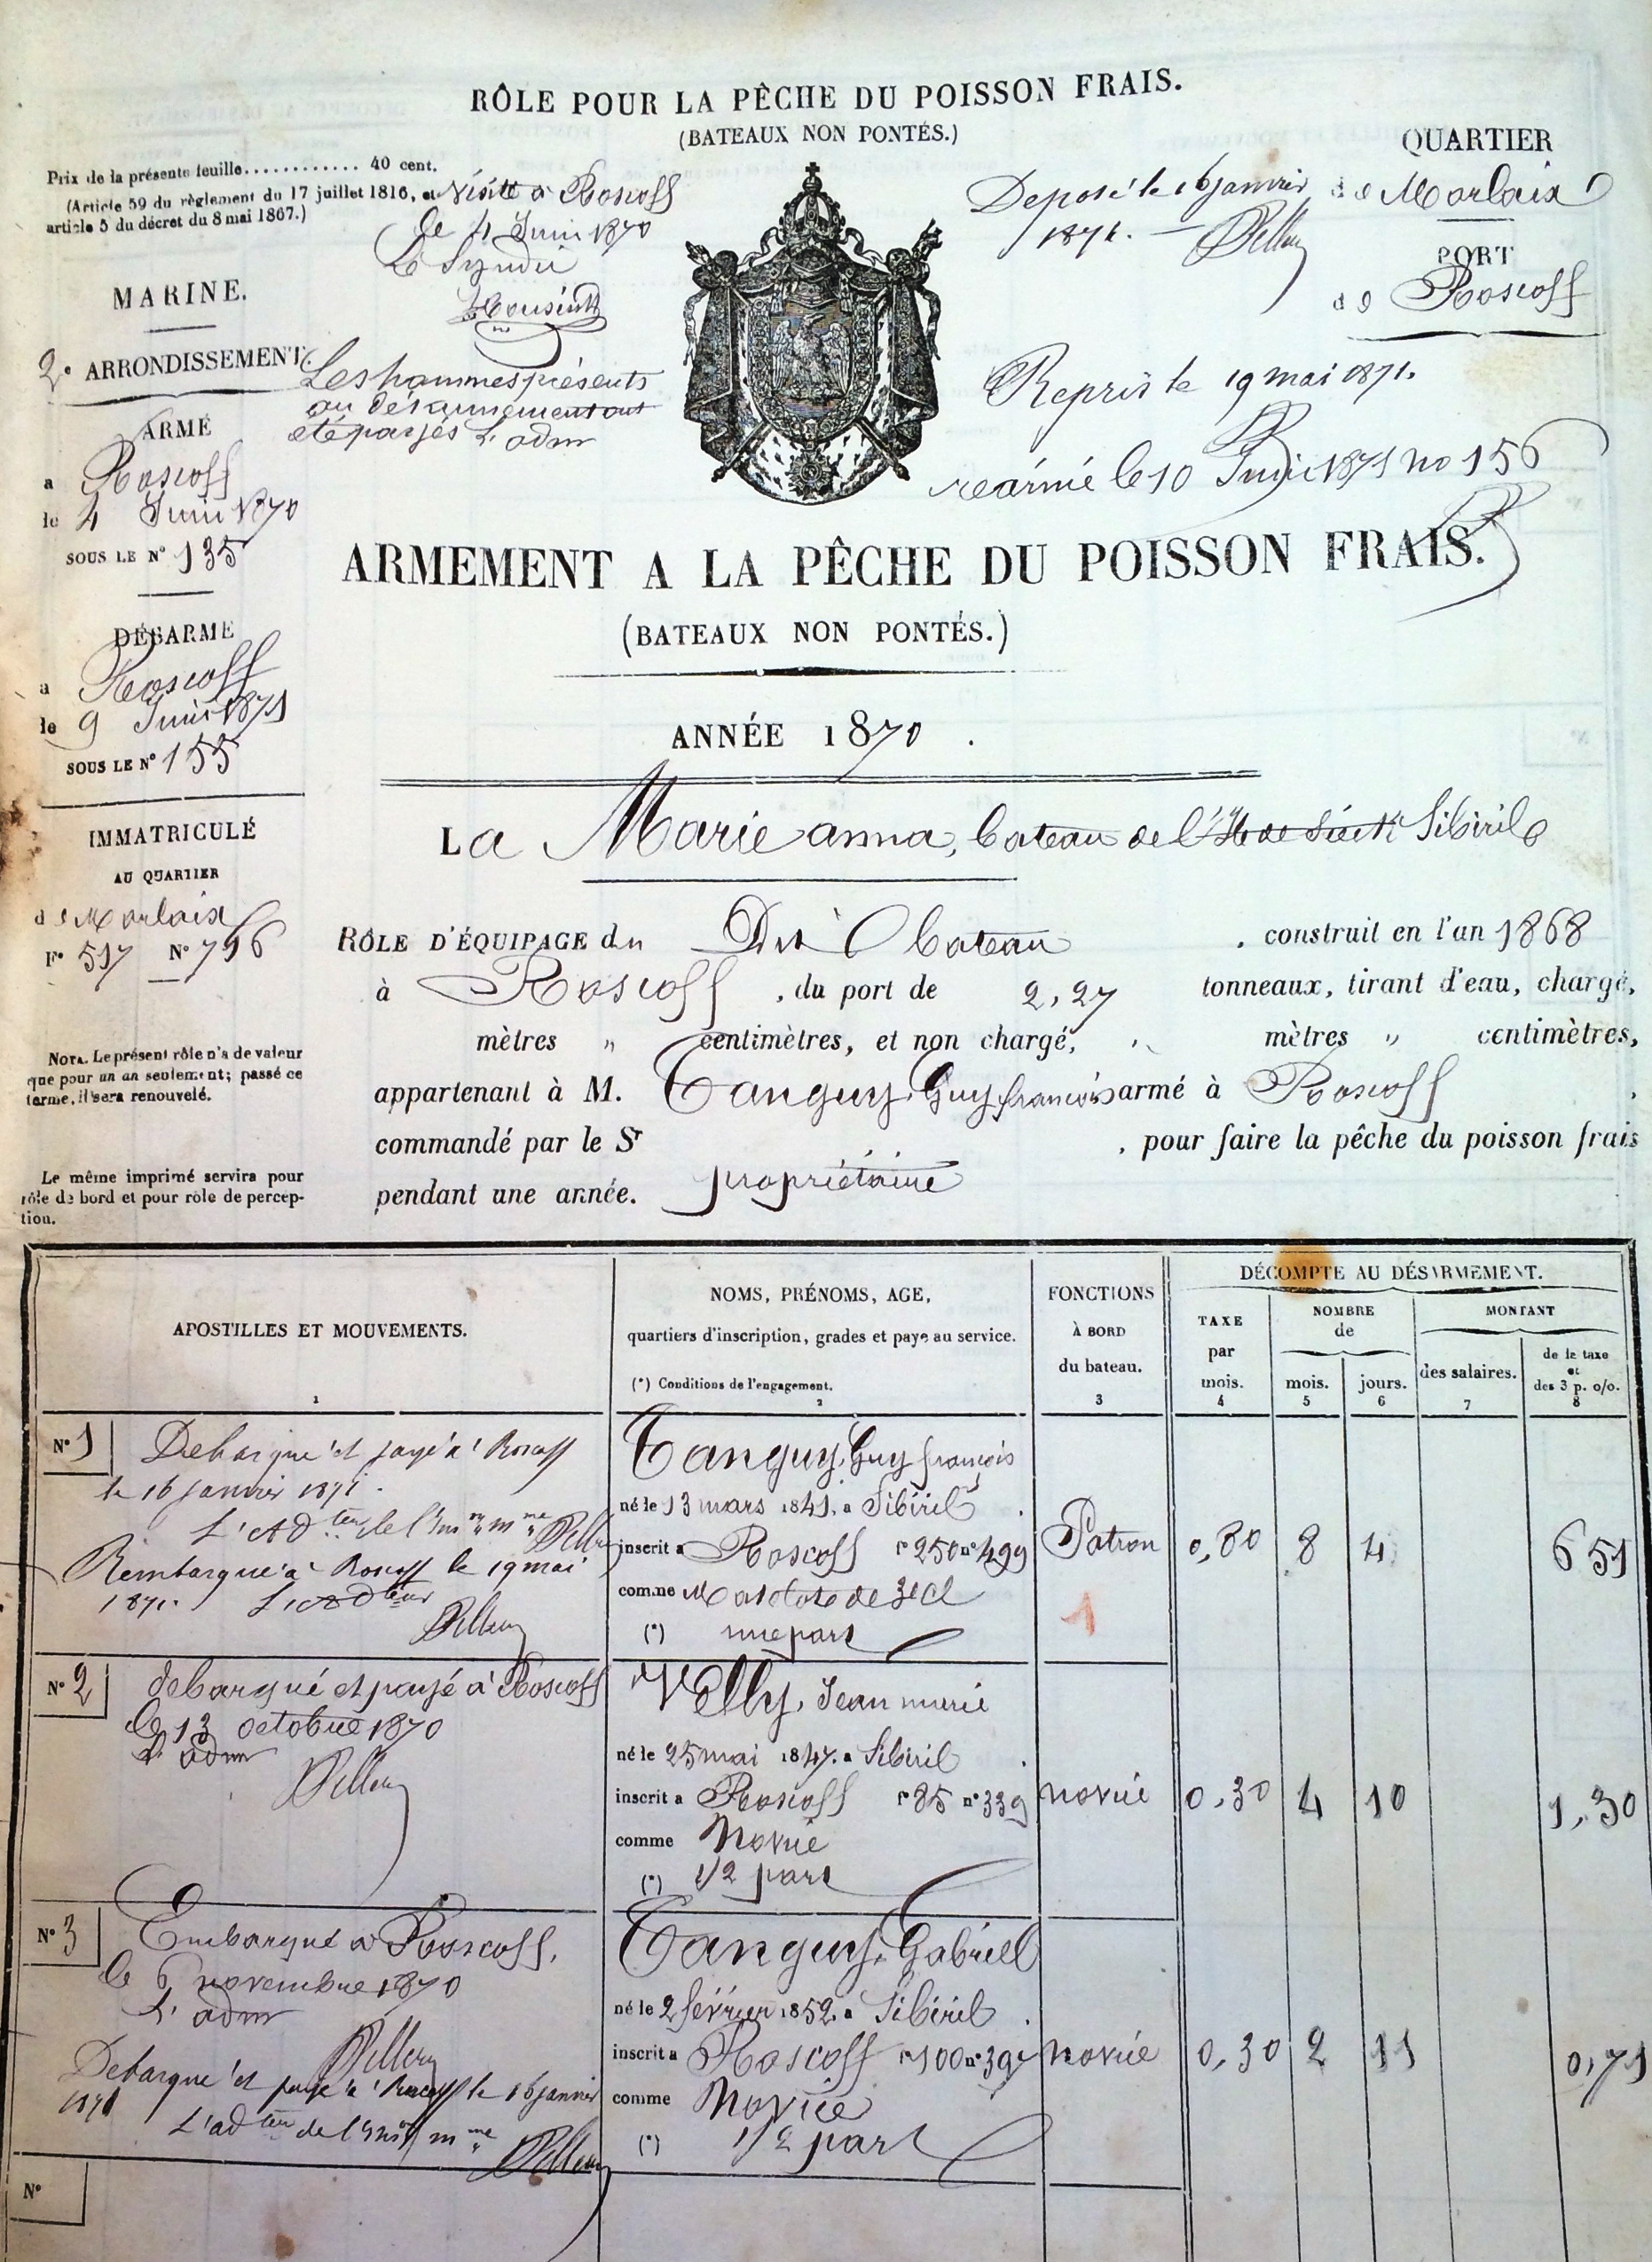 RÔLE POUR LA PÊCHE DU POISSON FRAIS.
(BATEAUX NON PONTÉS.)
Prix de la présente feuille............ 40 cent.
(Article 59 du règlement du 17 juillet 1816, et
article 5 du décret du 8 mai 1867.)
Visité à Roscoff
le 4 Juin 1870
Le Syndic
Les hommes présents
au désarmement ont
été payés L'adm
Deposé le 16 janvier
1871.
QUARTIER
de Morlaix
PORT
de Roscoff
Repris le 19 mai 1871.
réarmé le 10 Juin 1871 no 156
MARINE.
2e ARRONDISSEMENT.
ARMÉ
a Roscoff
le 4 Juin 1870
SOUS LE No 135
DÉSARMÉ
a Roscoff
le 9 Juin 1871
SOUS LE No 155
IMMATRICULÉ
AU QUARTIER
de Morlaix
Fo 517 No 796
NOTA. Le présent rôle n'a de valeur
que pour un an seulement; passé ce
terme, il sera renouvelé.
Le même imprimé servira pour
rôle de bord et pour rôle de percep-
tion.
ARMEMENT A LA PÊCHE DU POISSON FRAIS.
(BATEAUX NON PONTÉS.)
ANNÉE 1870.
La Marie anna, bateau de l'Ile de Sieck Sibiril
RÔLE D'ÉQUIPAGE du Dit bateau, construit en l'an 1868
à Roscoff, du port de 2,27 tonneaux, tirant d'eau, chargé,
mètres " centimètres, et non chargé, " mètres " centimètres,
appartenant à M. Tanguy, Guy françois armé à Roscoff,
commandé par le Sr propriétaire, pour faire la pêche du poisson frais
pendant une année.
APOSTILLES ET MOUVEMENTS.
1
NOMS, PRÉNOMS, AGE,
quartiers d'inscription, grades et paye au service.
(*) Conditions de l'engagement.
2
FONCTIONS
À BORD
du bateau.
3
DÉCOMPTE AU DÉSARMEMENT.
TAXE
par
mois.
4
NOMBRE
de
mois.
5
jours.
6
MONTANT
des salaires.
7
de la taxe
et
des 3 p. o/o.
8
No 1
Debarqué et payé à Roscoff
le 16 janvier 1871.
Rembarqué à Roscoff le 19 mai
1871.
Tanguy, Guy françois
né le 13 mars 1841. a Sibiril
inscrit a Roscoff fo 250 no 499
comme Matelot de 3e cl
(*) une part
Patron
1
0,80 8 4 6 51
No 2
debarqué et payé à Roscoff
le 13 octobre 1870
L'adm
Velly, Jean marie
né le 25 mai 1847. a Sibiril
inscrit a Roscoff fo 85 no 339
comme Novice
(*) 1/2 part
novice
0,30 4 10 1,30
No 3
Embarqué à Roscoff,
le 6 novembre 1870
L'adm
Debarqué et payé à Roscoff le 16 janvier
1871
Tanguy, Gabriel
né le 2 février 1852. a Sibiril
inscrit a Roscoff fo 100 no 397
comme Novice
(*) 1/2 part
novice
0,30 2 11 0,71
No